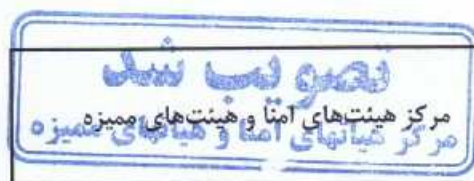 تصویب شد
مرکز هیئت‌های امنا و هیئت‌های ممیزه
مرکز هیأتهای امنا و هیأتهای ممیزه